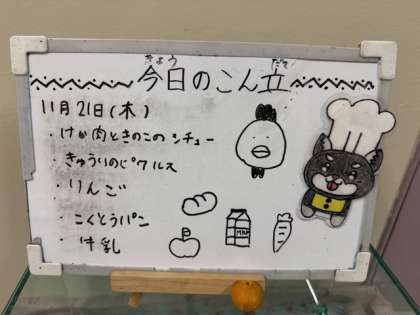 きょう だて
今日のこん立
11月21日(木)
・けい肉ときのこのシチュー
・きゅうりのピクルス
・りんご
・こくとうパン
・牛乳
MILK